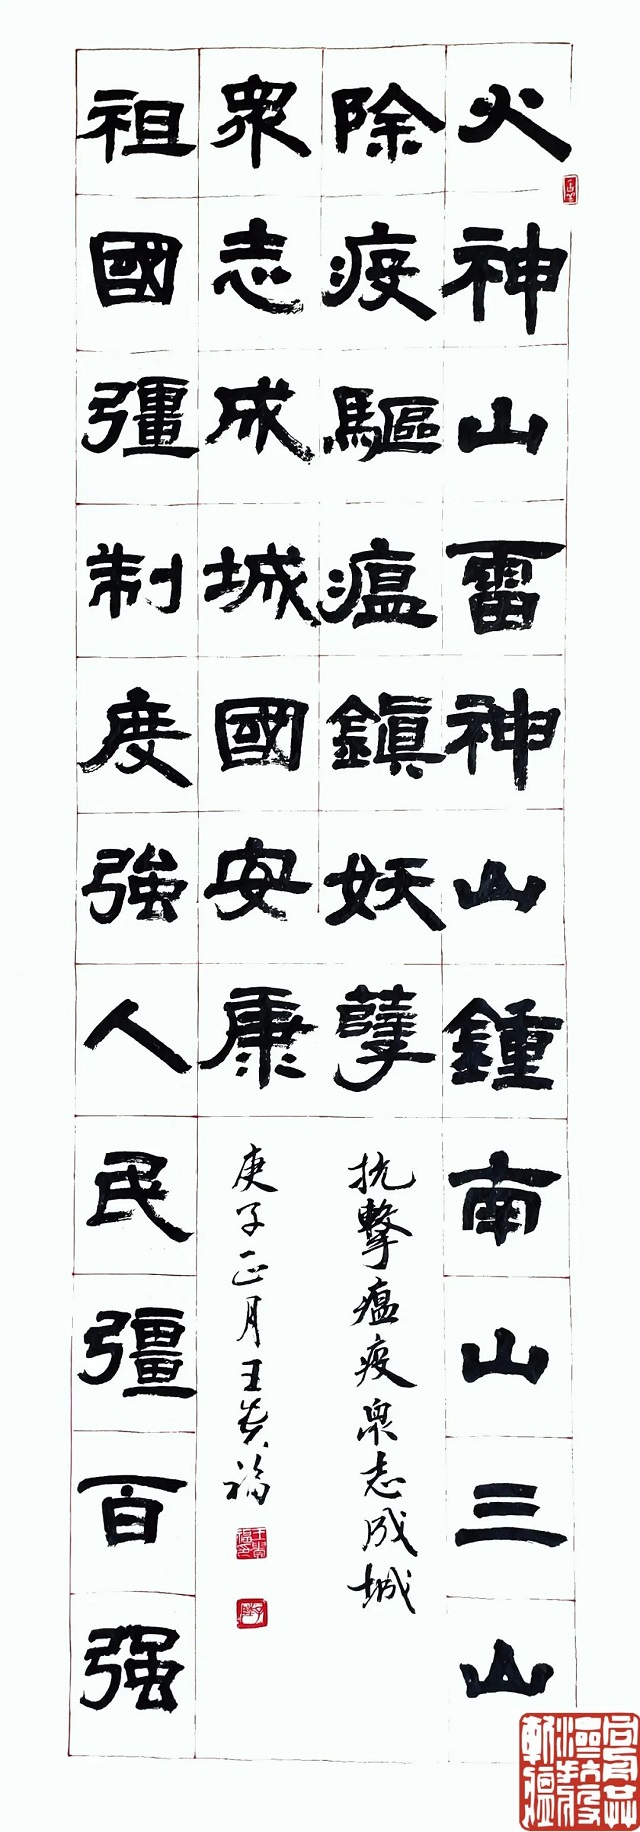 火神山雷神山鍾南山三山
除疫驅瘟鎮妖孽
衆志成城國安康
祖國彊制度強人民彊百强
抗擊瘟疫衆志成城
庚子正月王貴福